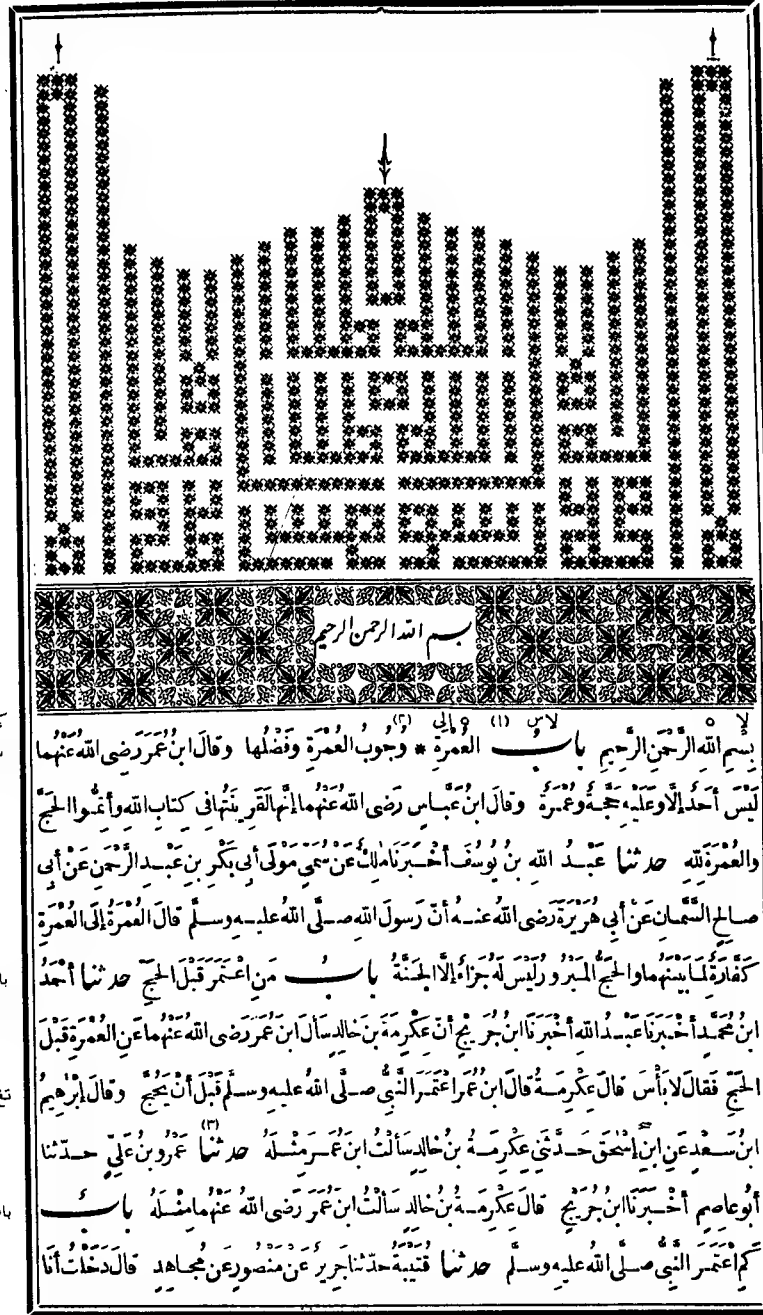 بسم الله الرحمن الرحيم
لا ه لاس (١) ه إلى (٢)
بِسْمِ اللهِ الرَّحْمٰنِ الرَّحِيمِ بابُ العُمْرَةِ * وُجُوبُ العُمْرَةِ وفَضْلُها وقالَ ابنُ عُمَرَ رَضِىَ اللهُ عَنْهُما
لَيْسَ أَحَدٌ إِلَّا وَعَلَيْهِ حَجَّةٌ وعُمْرَةٌ وقالَ ابنُ عَبَّاسٍ رَضِىَ اللهُ عَنْهُما إِنَّهَا لَقَرِينَتُهَا فى كِتابِ اللهِ وأَتِمُّوا الحَجَّ
والعُمْرَةَ لِلّٰهِ حدثنا عَبْدُ اللهِ بنُ يُوسُفَ أَخْبَرَنَا مٰلِكٌ عَنْ سُمَىٍّ مَوْلَى أَبِى بَكْرِ بنِ عَبْدِ الرَّحْمٰنِ عَنْ أَبِى
صالِحٍ السَّمَّانِ عَنْ أَبِى هُرَيْرَةَ رَضِىَ اللهُ عنهُ أنَّ رَسولَ اللهِ صلَّى اللهُ عليهِ وسلَّم قالَ العُمْرَةُ إلَى العُمْرَةِ
كَفَّارَةٌ لِمَا بَيْنَهُما والحَجُّ المَبْرُورُ لَيْسَ لَهُ جَزَاءٌ إِلَّا الجَنَّةُ بابُ مَنِ اعْتَمَرَ قَبْلَ الحَجِّ حدثنا أَحْمَدُ
ابنُ مُحَمَّدٍ أَخْبَرَنَا عَبْدُ اللهِ أَخْبَرَنَا ابنُ جُرَيْجٍ أنَّ عِكْرِمَةَ بنَ خالِدٍ سَأَلَ ابنَ عُمَرَ رَضِىَ اللهُ عَنْهُما عَنِ العُمْرَةِ قَبْلَ
الحَجِّ فَقالَ لا بَأْسَ قالَ عِكْرِمَةُ قالَ ابنُ عُمَرَ اعْتَمَرَ النَّبِىُّ صلَّى اللهُ عليهِ وسلَّم قَبْلَ أَنْ يَحُجَّ وقالَ إِبْرٰهِيمُ
ابنُ سَعْدٍ عَنِ ابنِ إِسْحٰقَ حَدَّثَنِى عِكْرِمَةُ بنُ خالِدٍ سَأَلْتُ ابنَ عُمَرَ مِثْلَهُ حدثنا (٣) عَمْرُو بنُ عَلِىٍّ حدّثنا
أَبُو عاصِمٍ أَخْبَرَنَا ابنُ جُرَيْجٍ قالَ عِكْرِمَةُ بنُ خالِدٍ سَأَلْتُ ابنَ عُمَرَ رَضِىَ اللهُ عَنْهُما مِثْلَهُ بابُ
كَمِ اعْتَمَرَ النَّبِىُّ صلَّى اللهُ عليهِ وسلَّم حدثنا قُتَيْبَةُ حدّثنا جَرِيرٌ عَنْ مَنْصُورٍ عَنْ مُجاهِدٍ قالَ دَخَلْتُ أَنَا